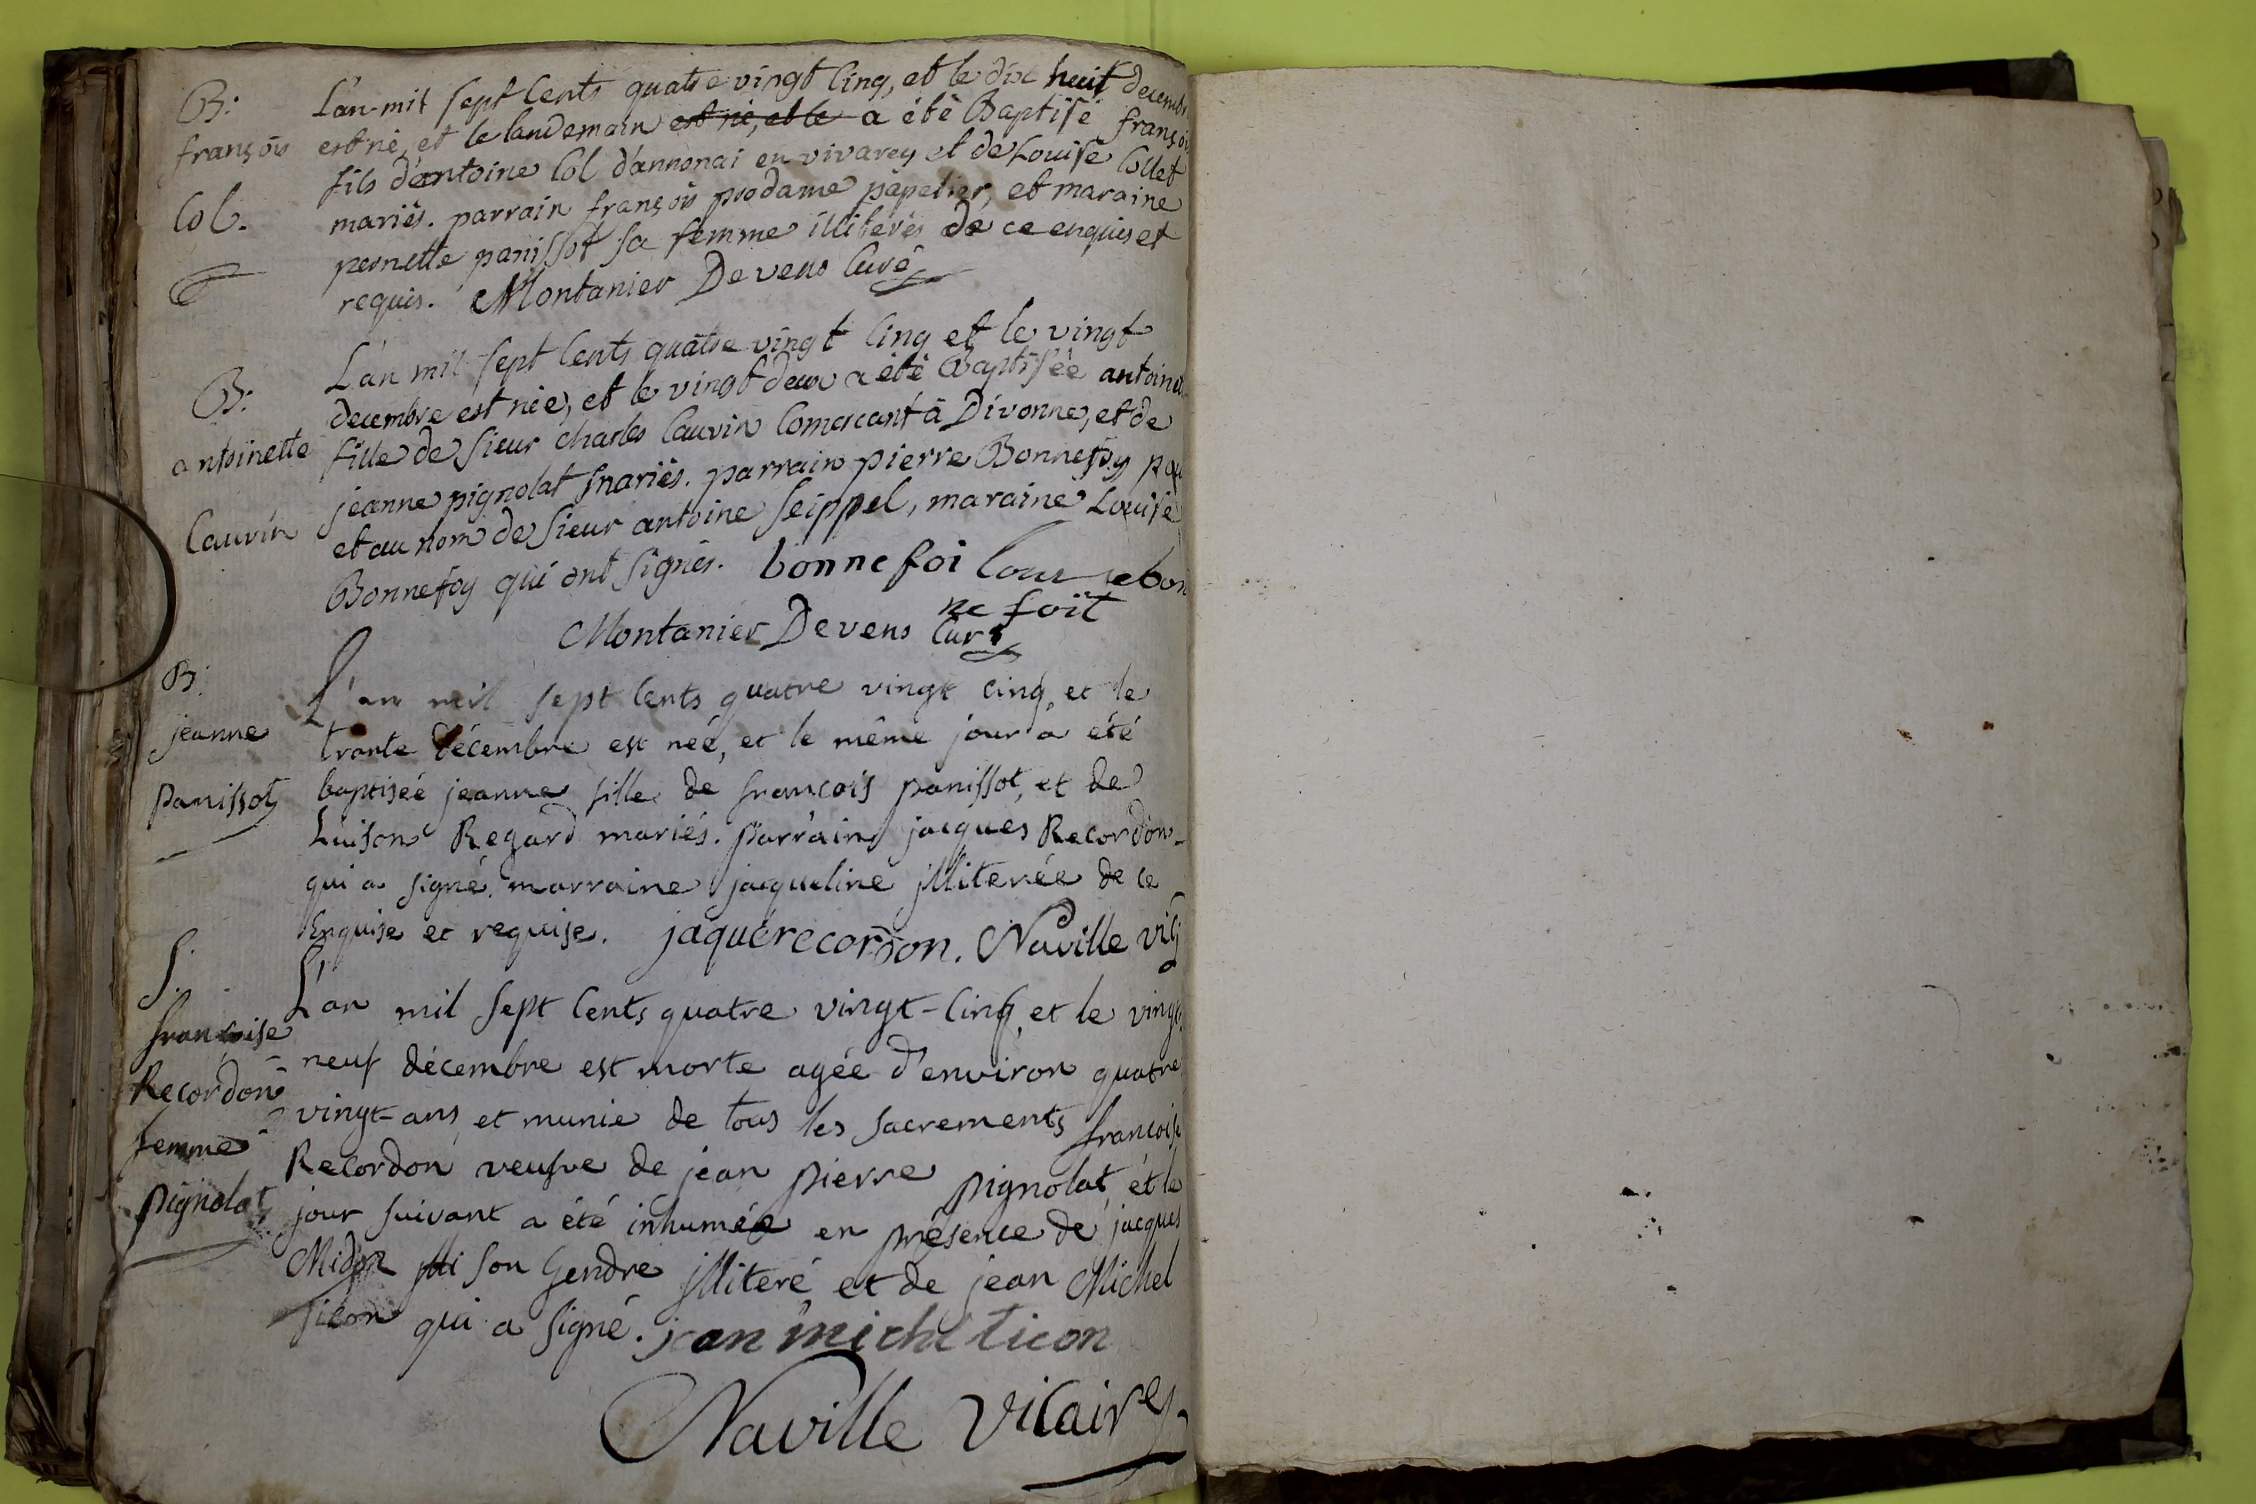 B:
françois
Col.
L'an mil sept cents quatre vingt cinq, et le dix huit decembr
est né, et le landemain est né, et le a été Baptisé françois
fils d'antoine Col d'annonai en vivarey et de Louise Collet
mariés. parrain françois prodame papetier, et maraine
pernette panissot sa femme illiterés de ce enquis et
requis. Montanier Devens Curé
B:
antoinette
Cauvin
L'an mil sept cents quatre vingt cinq et le vingt
decembre est née, et le vingt deux a été Baptisée antoine
fille de Sieur charles Cauvin Comercant à Divonne, et de
jeanne pignolat mariés. parrain pierre Bonnefoy pou
et au nom de Sieur antoine Seippel, maraine Louise
Bonnefoy qui ont signés. bonne foi Louise bon
ne foit
Montanier Devens Curé
B:
jeanne
Panissot
L'an mil sept cents quatre vingt cinq, et le
trante décembre est née, et le même jour a été
baptisée jeanne fille de francois panissot, et de
Luison Regard mariés. parrain jacques Recordon
qui a signé. marraine jacqueline illiterée de ce
Enquise et requise. jaque recordon. Naville vic
S.
francoise
Recordon
femme
pignolat
L'an mil sept cents quatre vingt-cinq, et le vingt
neuf décembre est morte agée d'environ quatre
vingt-ans, et munie de tous les sacrements francoise
Recordon veufve de jean pierre pignolat, et le
jour suivant a été inhumée en présence de jacques
Midon son Gendre illiteré et de jean Michel
ticon qui a signé. jean michel ticon
Naville vicaire